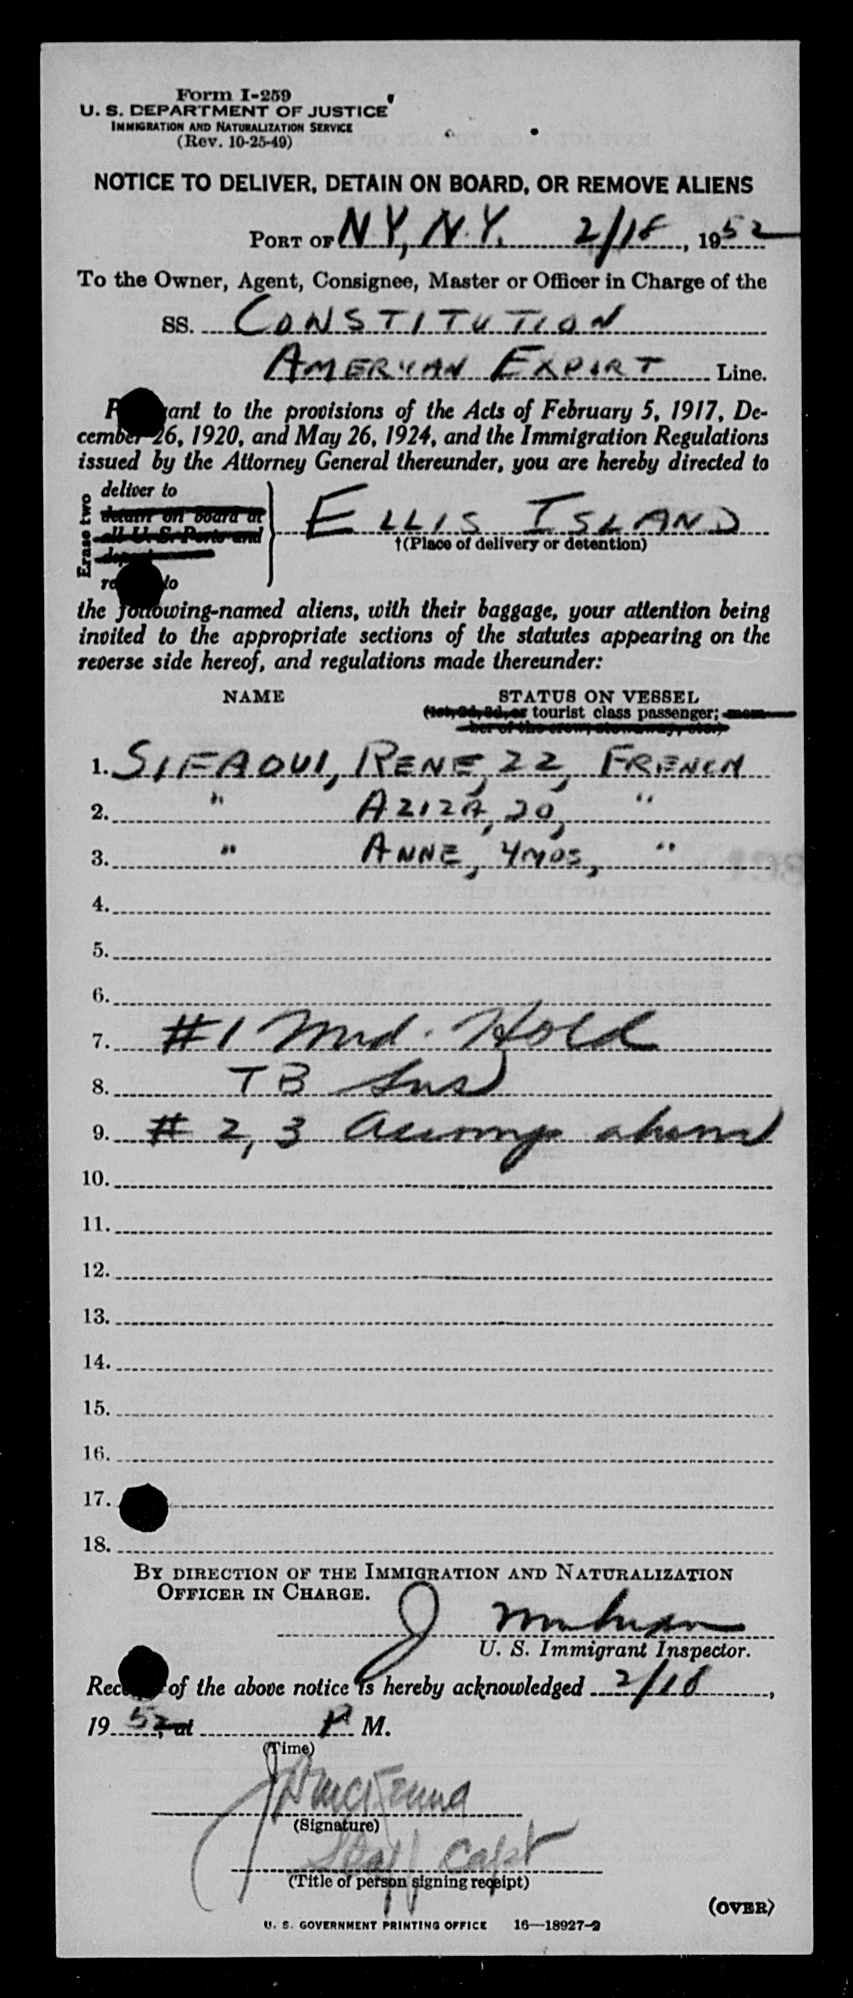 Form I-259
U. S. DEPARTMENT OF JUSTICE
IMMIGRATION AND NATURALIZATION SERVICE
(Rev. 10-25-49)
NOTICE TO DELIVER, DETAIN ON BOARD, OR REMOVE ALIENS
PORT OF N.Y., N.Y. 2/18, 1952
To the Owner, Agent, Consignee, Master or Officer in Charge of the
SS. CONSTITUTION
AMERICAN EXPORT Line.
to the provisions of the Acts of February 5, 1917, De-
cember 26, 1920, and May 26, 1924, and the Immigration Regulations
issued by the Attorney General thereunder, you are hereby directed to
Erase two
deliver to
detain on board at
all U. S. Ports and
ELLIS ISLAND
†(Place of delivery or detention)
to
the following-named aliens, with their baggage, your attention being
invited to the appropriate sections of the statutes appearing on the
reverse side hereof, and regulations made thereunder:
NAME STATUS ON VESSEL
(1st, 2d, 3d, or tourist class passenger; mem-
ber of the crew, stowaway, etc.)
1. SIFAOUI, RENE, 22, FRENCH
2. " AZIZA, 20, "
3. " ANNE, 4 MOS, "
4.
5.
6.
7. #1 Med. Hold
8. TB Sus
9. # 2, 3 Accomp
10.
11.
12.
13.
14.
15.
16.
17.
18.
BY DIRECTION OF THE IMMIGRATION AND NATURALIZATION
OFFICER IN CHARGE.
J
U. S. Immigrant Inspector.
of the above notice is hereby acknowledged 2/18,
1952, at P. M.
(Time)
McKenna
(Signature)
Staff Capt
(Title of person signing receipt)
(OVER)
U. S. GOVERNMENT PRINTING OFFICE 16—18927-2